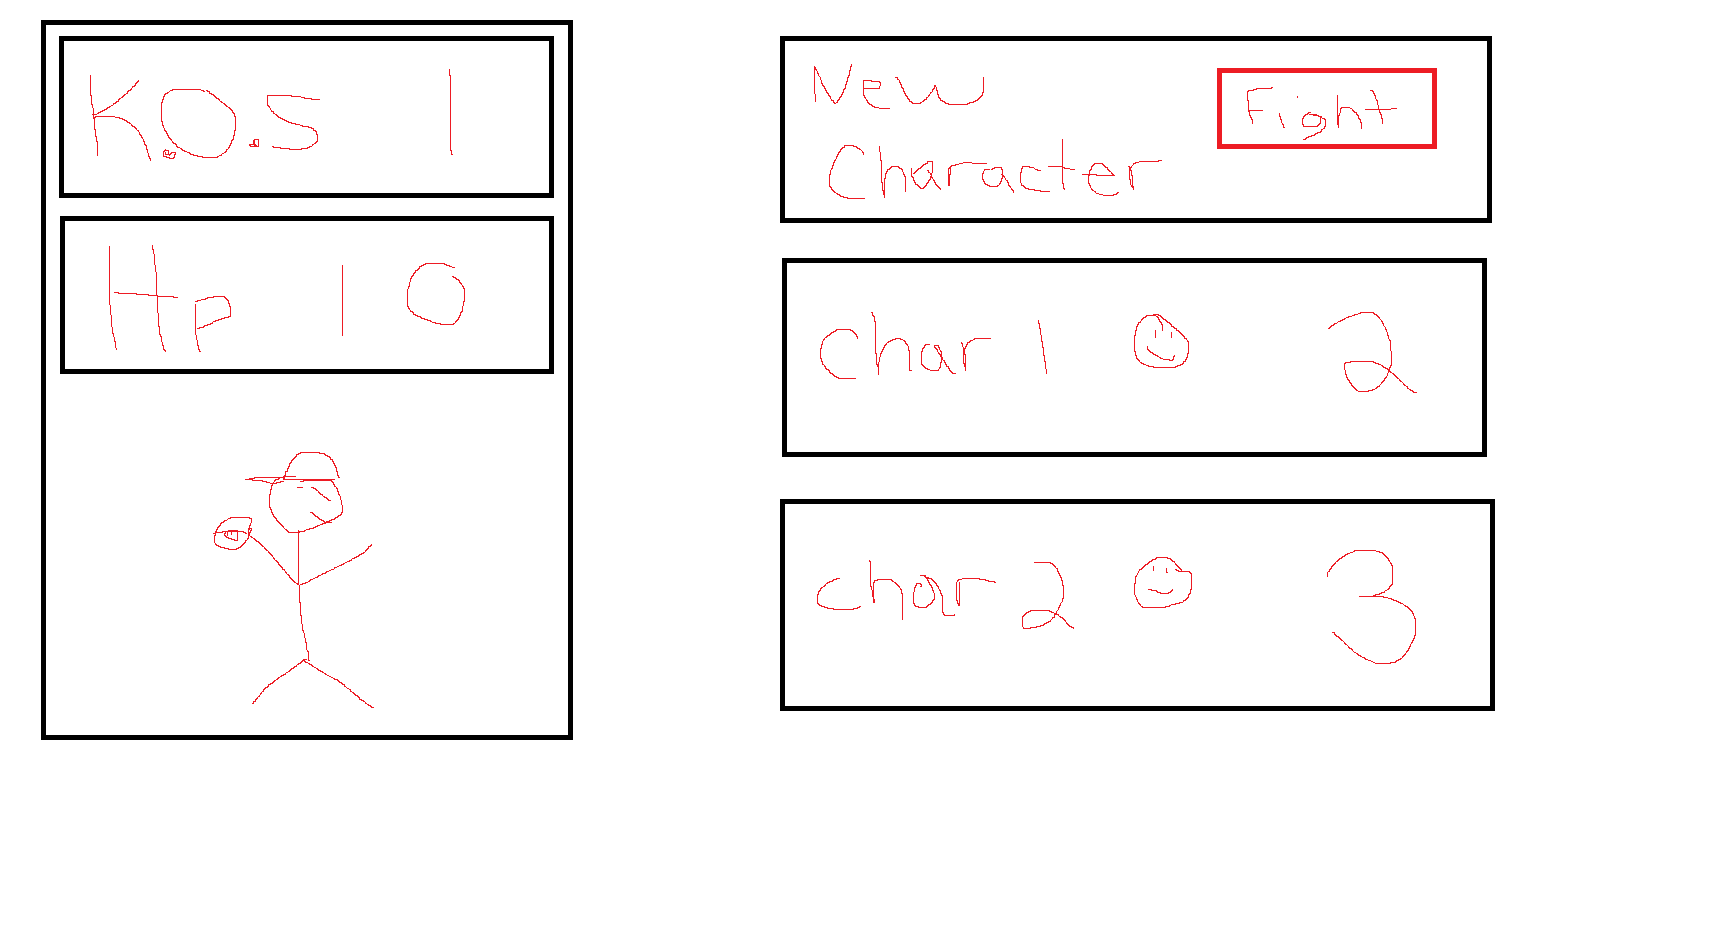 K.O.s 1
Hp 10
New
Character
Fight
Char 1 2
char 2 3